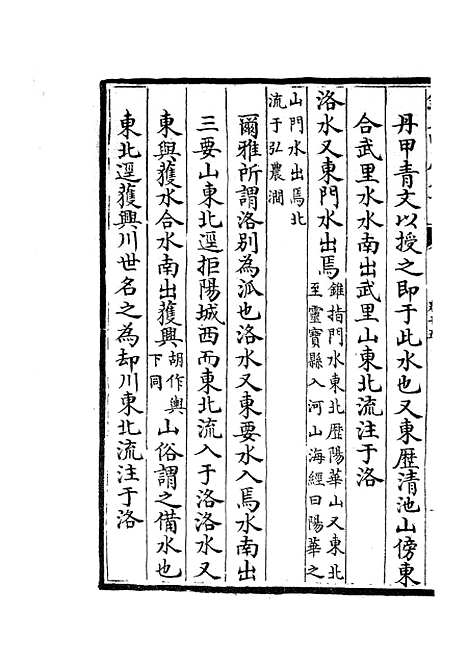 丹甲青文以授之即于此水也又東歷清池山傍東
合武里水水南出武里山東北流注于洛
洛水又東門水出焉錐指門水東北歷陽華山又東北
至靈寶縣入河山海經曰陽華之
山門水出焉北
流于弘農澗
爾雅所謂洛別為派也洛水又東要水入焉水南出
三要山東北逕拒陽城西而東北流入于洛洛水又
東與獲水合水南出獲輿胡作輿
下同山俗謂之備水也
東北逕獲輿川世名之為却川東北流注于洛